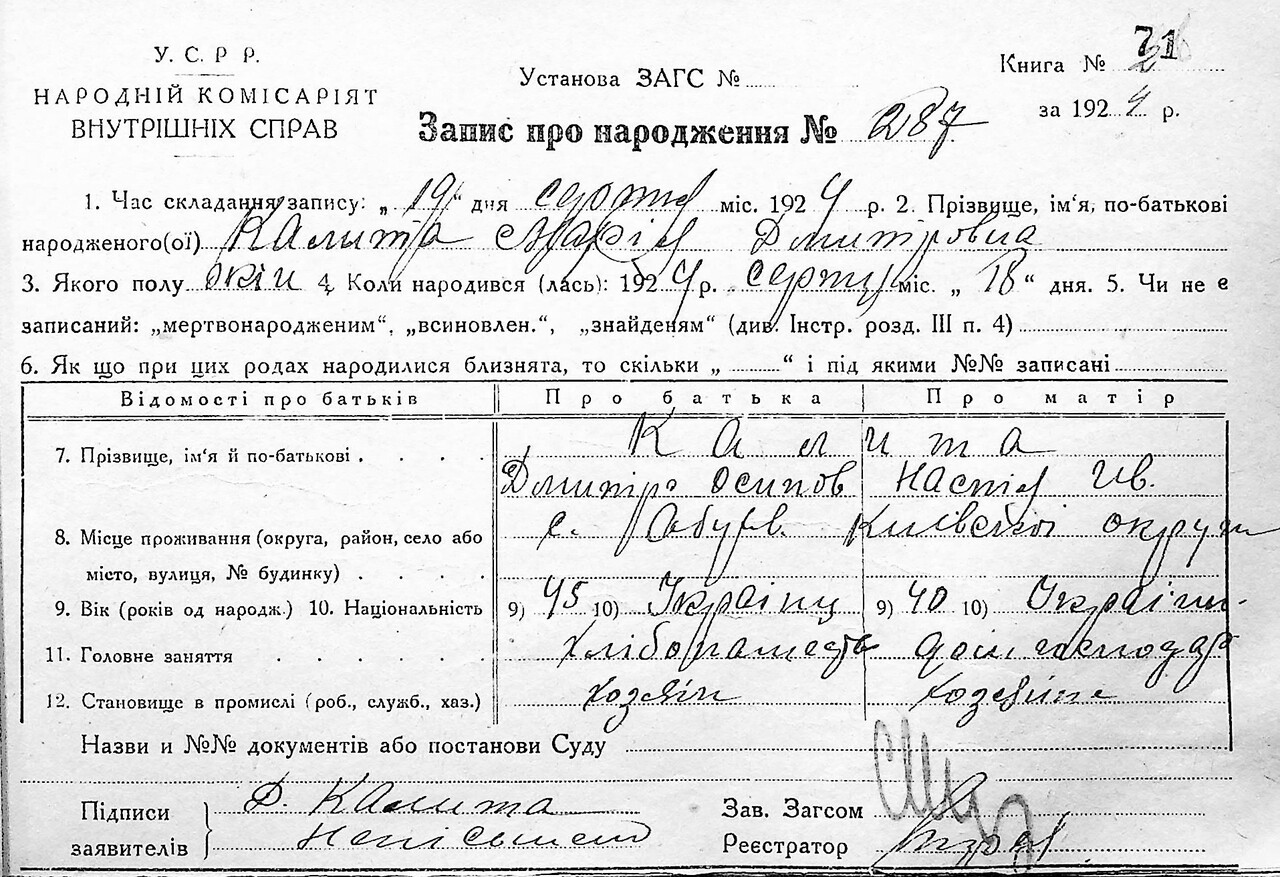 У. С. Р Р.
НАРОДНІЙ КОМІСАРІЯТ
ВНУТРІШНІХ СПРАВ
Установа ЗАГС №
Книга № 71
за 1924 р.
Запис про народження № 287
1. Час складання запису: „ 19 “ дня серпня міс. 1924 р. 2. Прізвище, ім'я, по-батькові
народженого(ої) Калита Марія Дмитровна
3. Якого полу жін 4. Коли народився (лась): 1924 р. серпня міс. „ 18 “ дня. 5. Чи не є
записаний: „мертвонародженим“, „всиновлен.“, „знайденям“ (див. Інстр. розд. III п. 4)
6. Як що при цих родах народилися близнята, то скільки „ “ і під якими №№ записані
Відомості про батьків Про батька Про матір
7. Прізвище, ім'я й по-батькові Калита
Дмитро Осипов Настія Ив.
8. Місце проживання (округа, район, село або с. Київської округи
місто, вулиця, № будинку)
9. Вік (років од народж.) 10. Національність 9) 45 10) Українц 9) 40 10) Україн.
11. Головне заняття дом господар
12. Становище в промислі (роб., служб., хаз.) хозяїн
Назви и №№ документів або постанови Суду
Підписи Д. Калита
заявителів
Зав. Загсом
Реєстратор